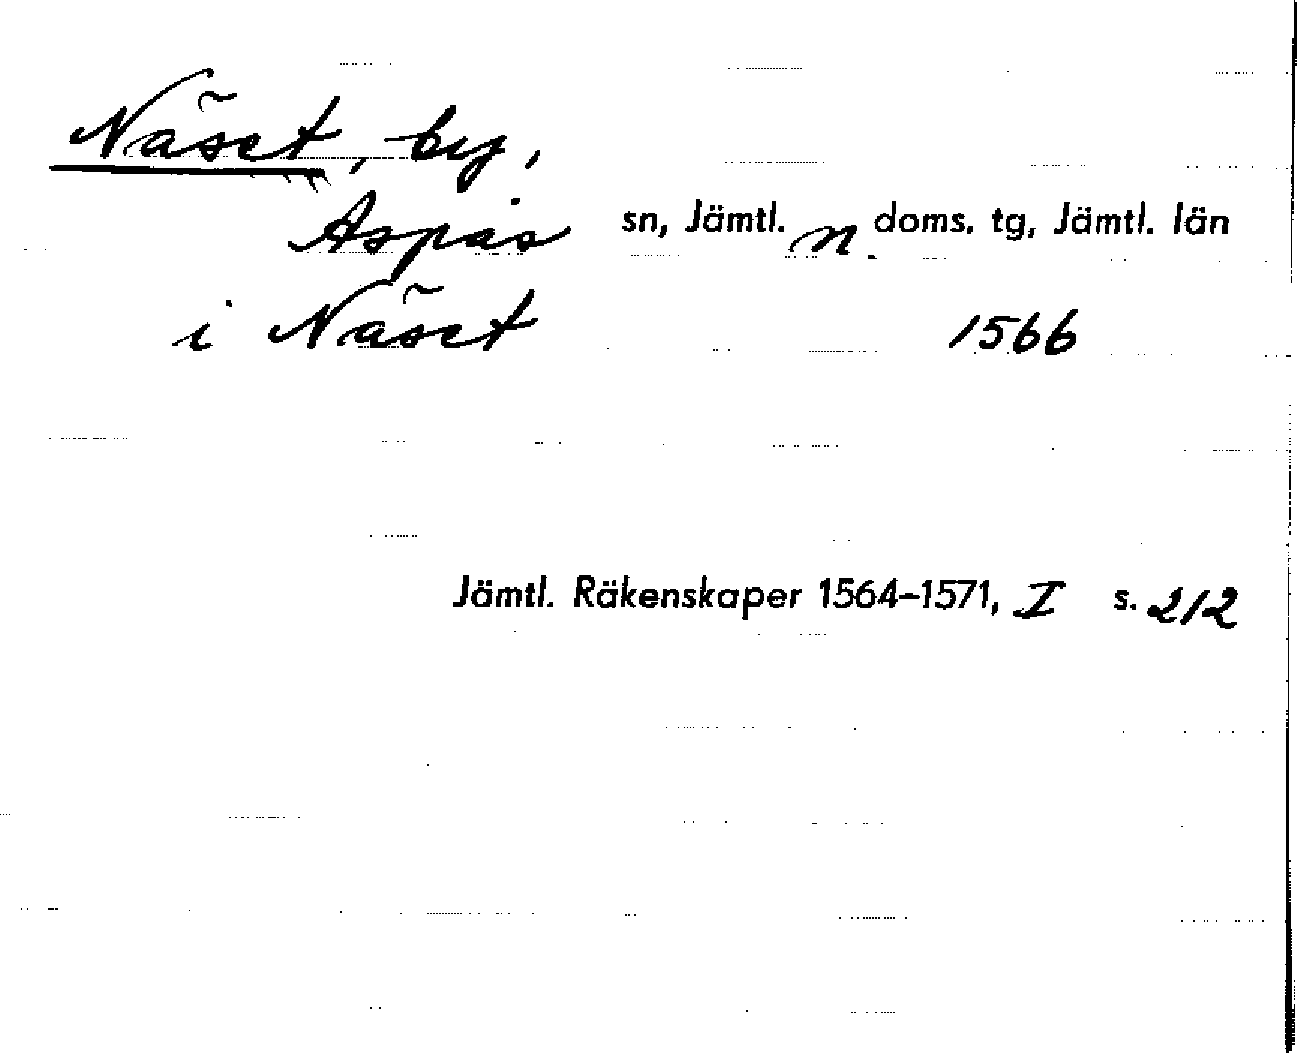 Näset, by,
Aspås sn, Jämtl. n. doms. tg, Jämtl. län
i Näset 1566
Jämtl. Räkenskaper 1564–1571, I s. 212